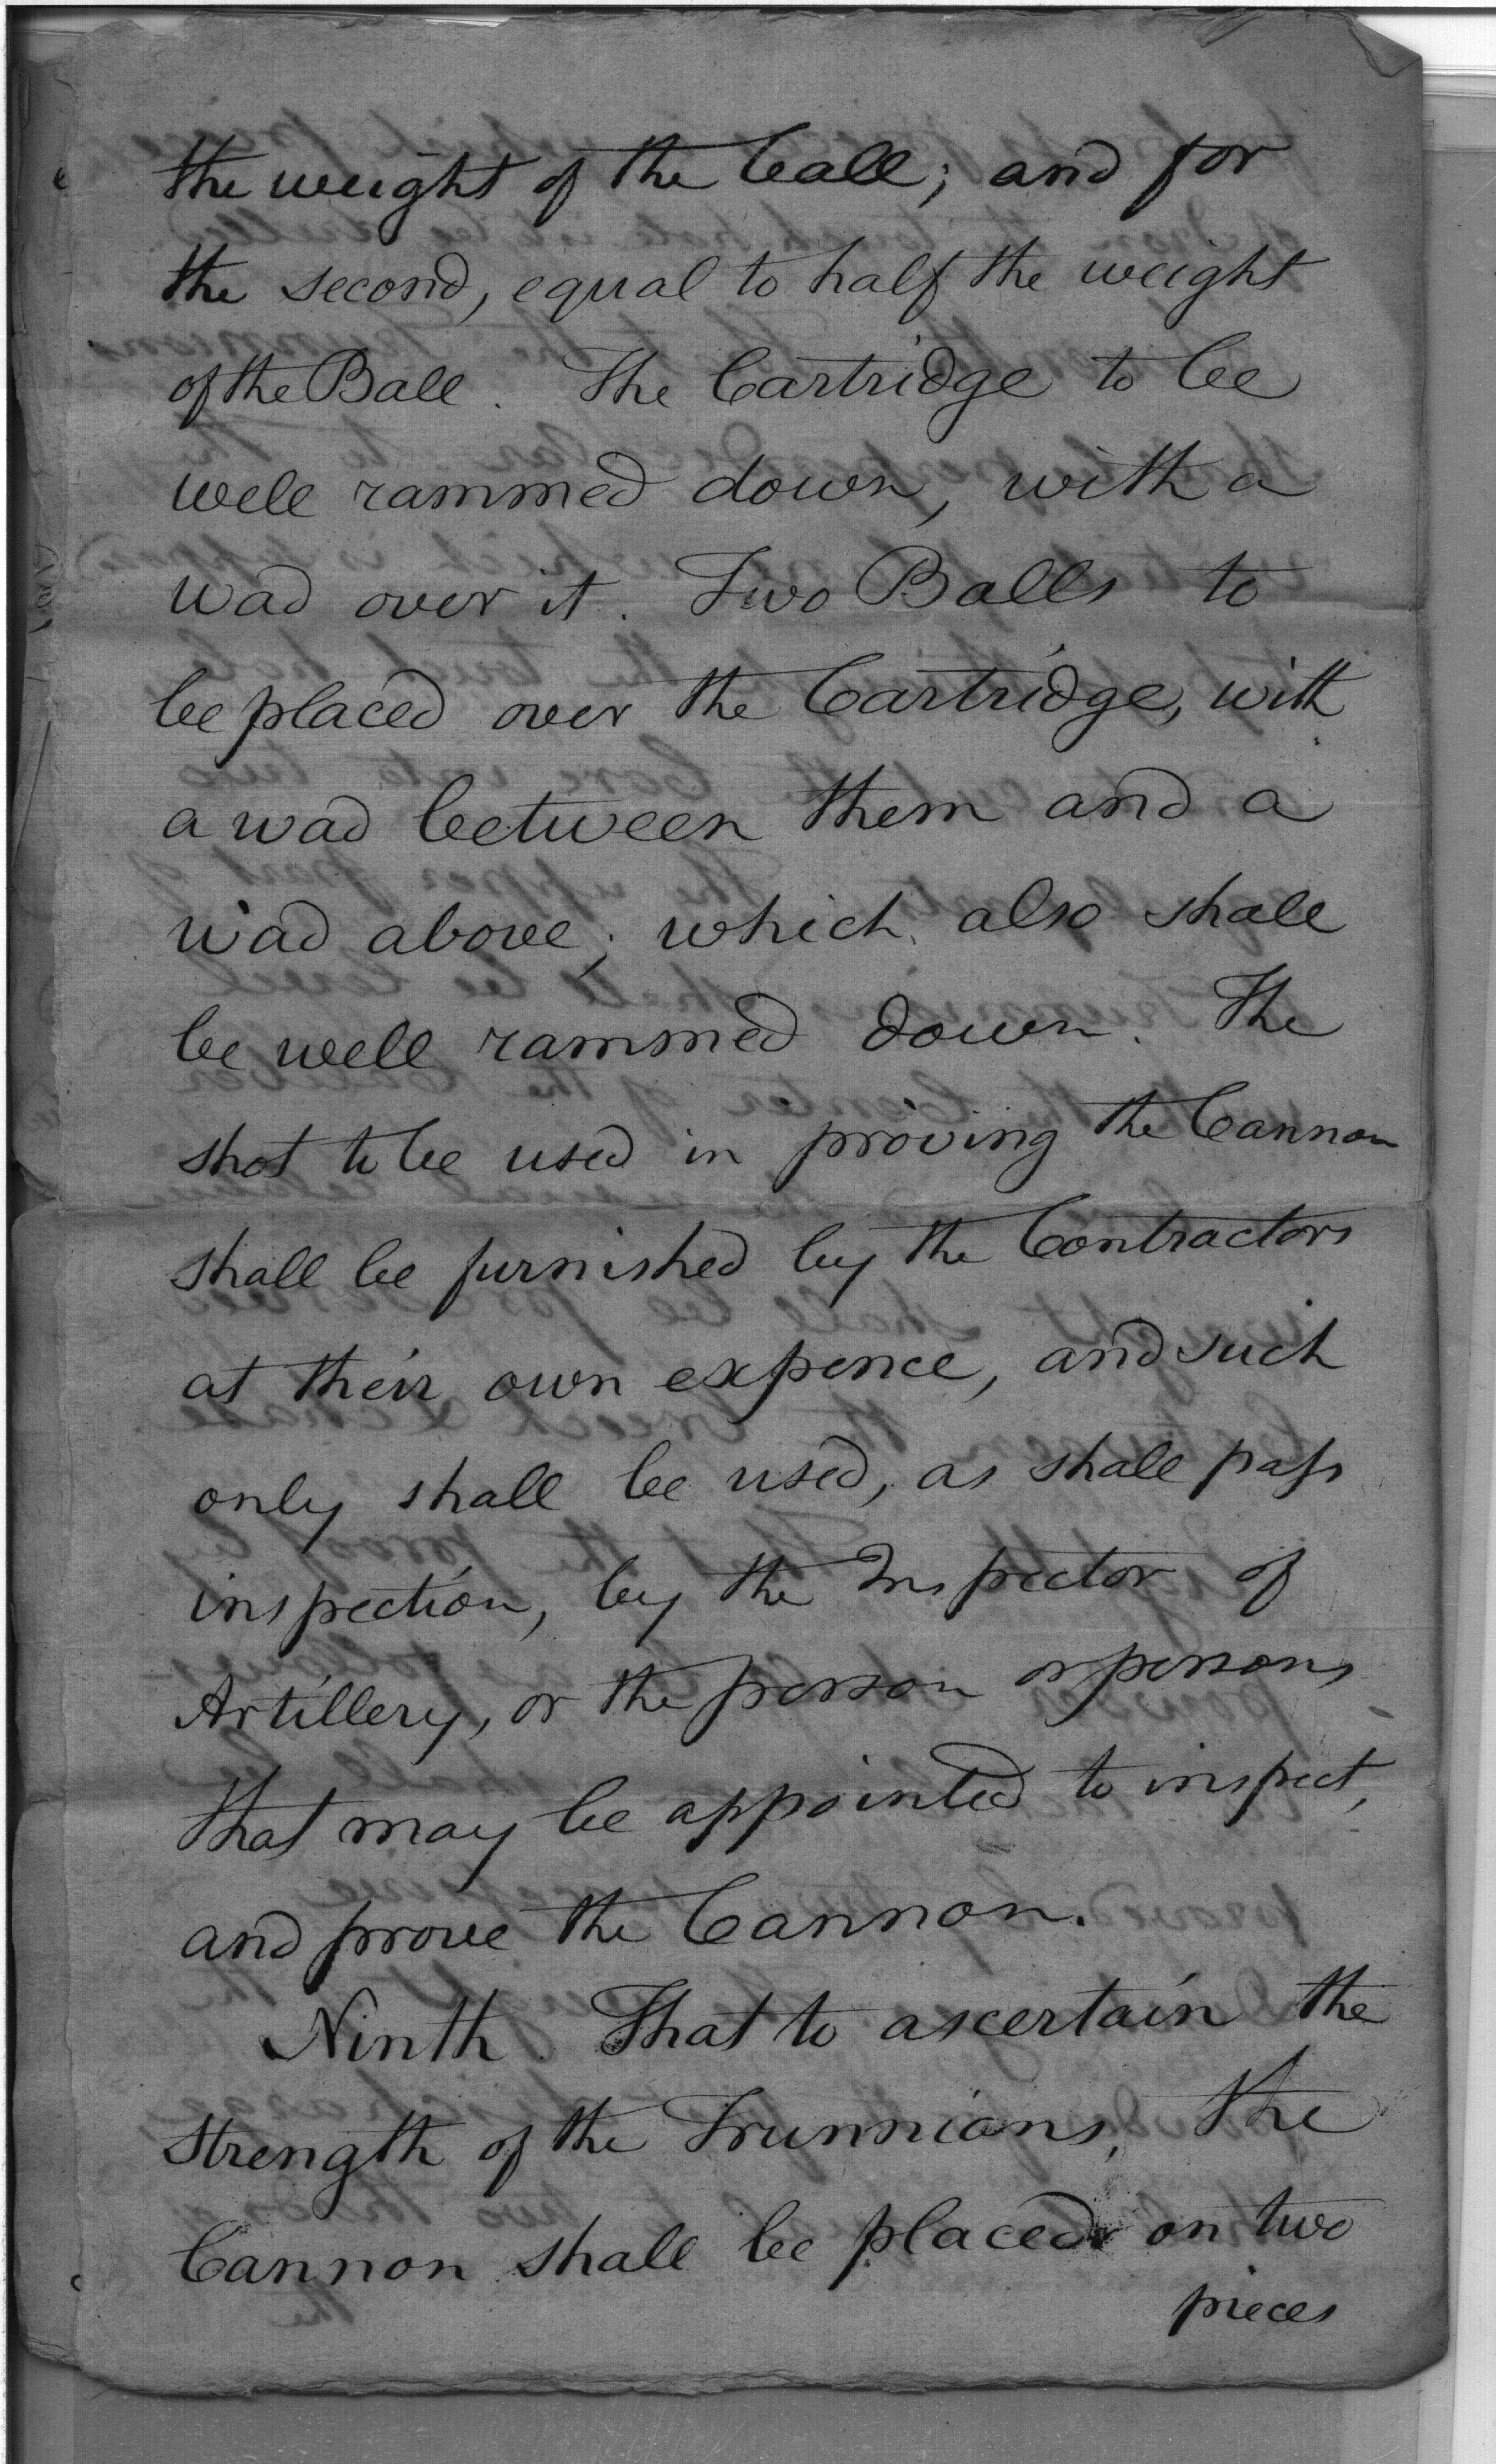 the weight of the ball; and for
the second, equal to half the weight
of the Ball. The Cartridge to be
well rammed down, with a
wad over it. Two Balls to
be placed over the Cartridge, with
a wad between them and a
wad above; which also shall
be well rammed down. The
shot to be used in proving the Cannon
shall be furnished by the Contractors
at their own expence, and such
only shall be used, as shall pass
inspection, by the Inspector of
Artillery, or the person or persons
that may be appointed to inspect,
and prove the Cannon.
Ninth. That to ascertain the
strength of the Trunnions, the
Cannon shall be placed on two
pieces